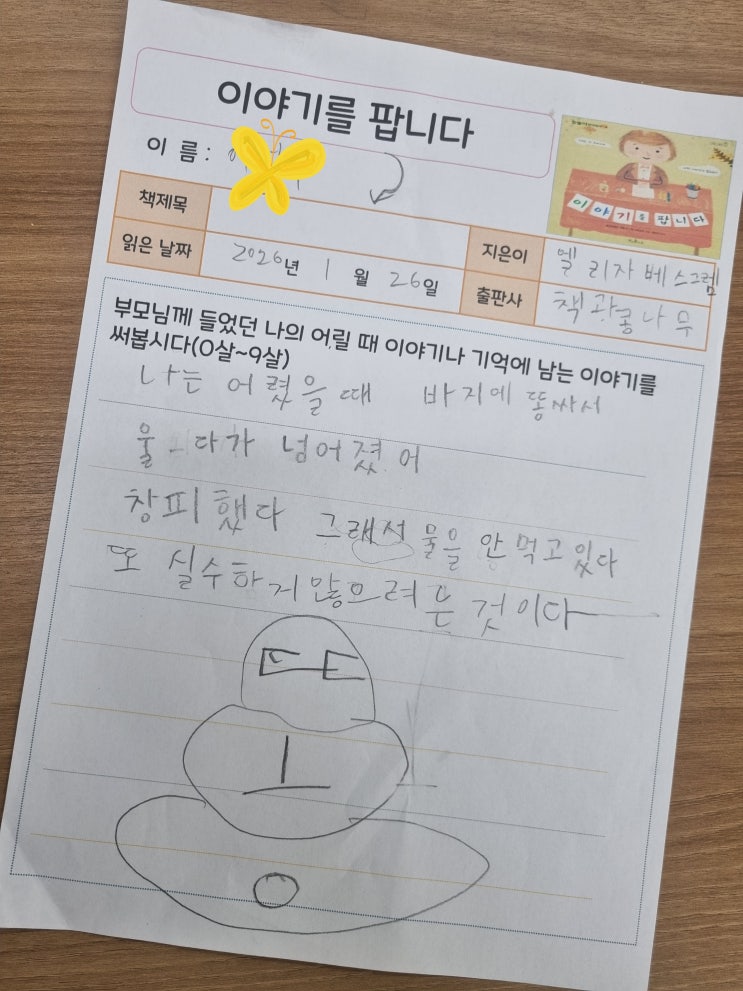 이야기를 팝니다
이 름 :
책제목
이야기를 팝니다
읽은 날짜 2026년 1월 26일
지은이 엘리자베스그렘
출판사 책과콩나무
부모님께 들었던 나의 어릴 때 이야기나 기억에 남는 이야기를
써봅시다(0살~9살)
나는 어렸을때 바지에 똥싸서
울다가 넘어졌어
창피했다 그래서 물을 안먹고있다
또 실수하지않으려는것이다
또
ㅗ
ㅇ